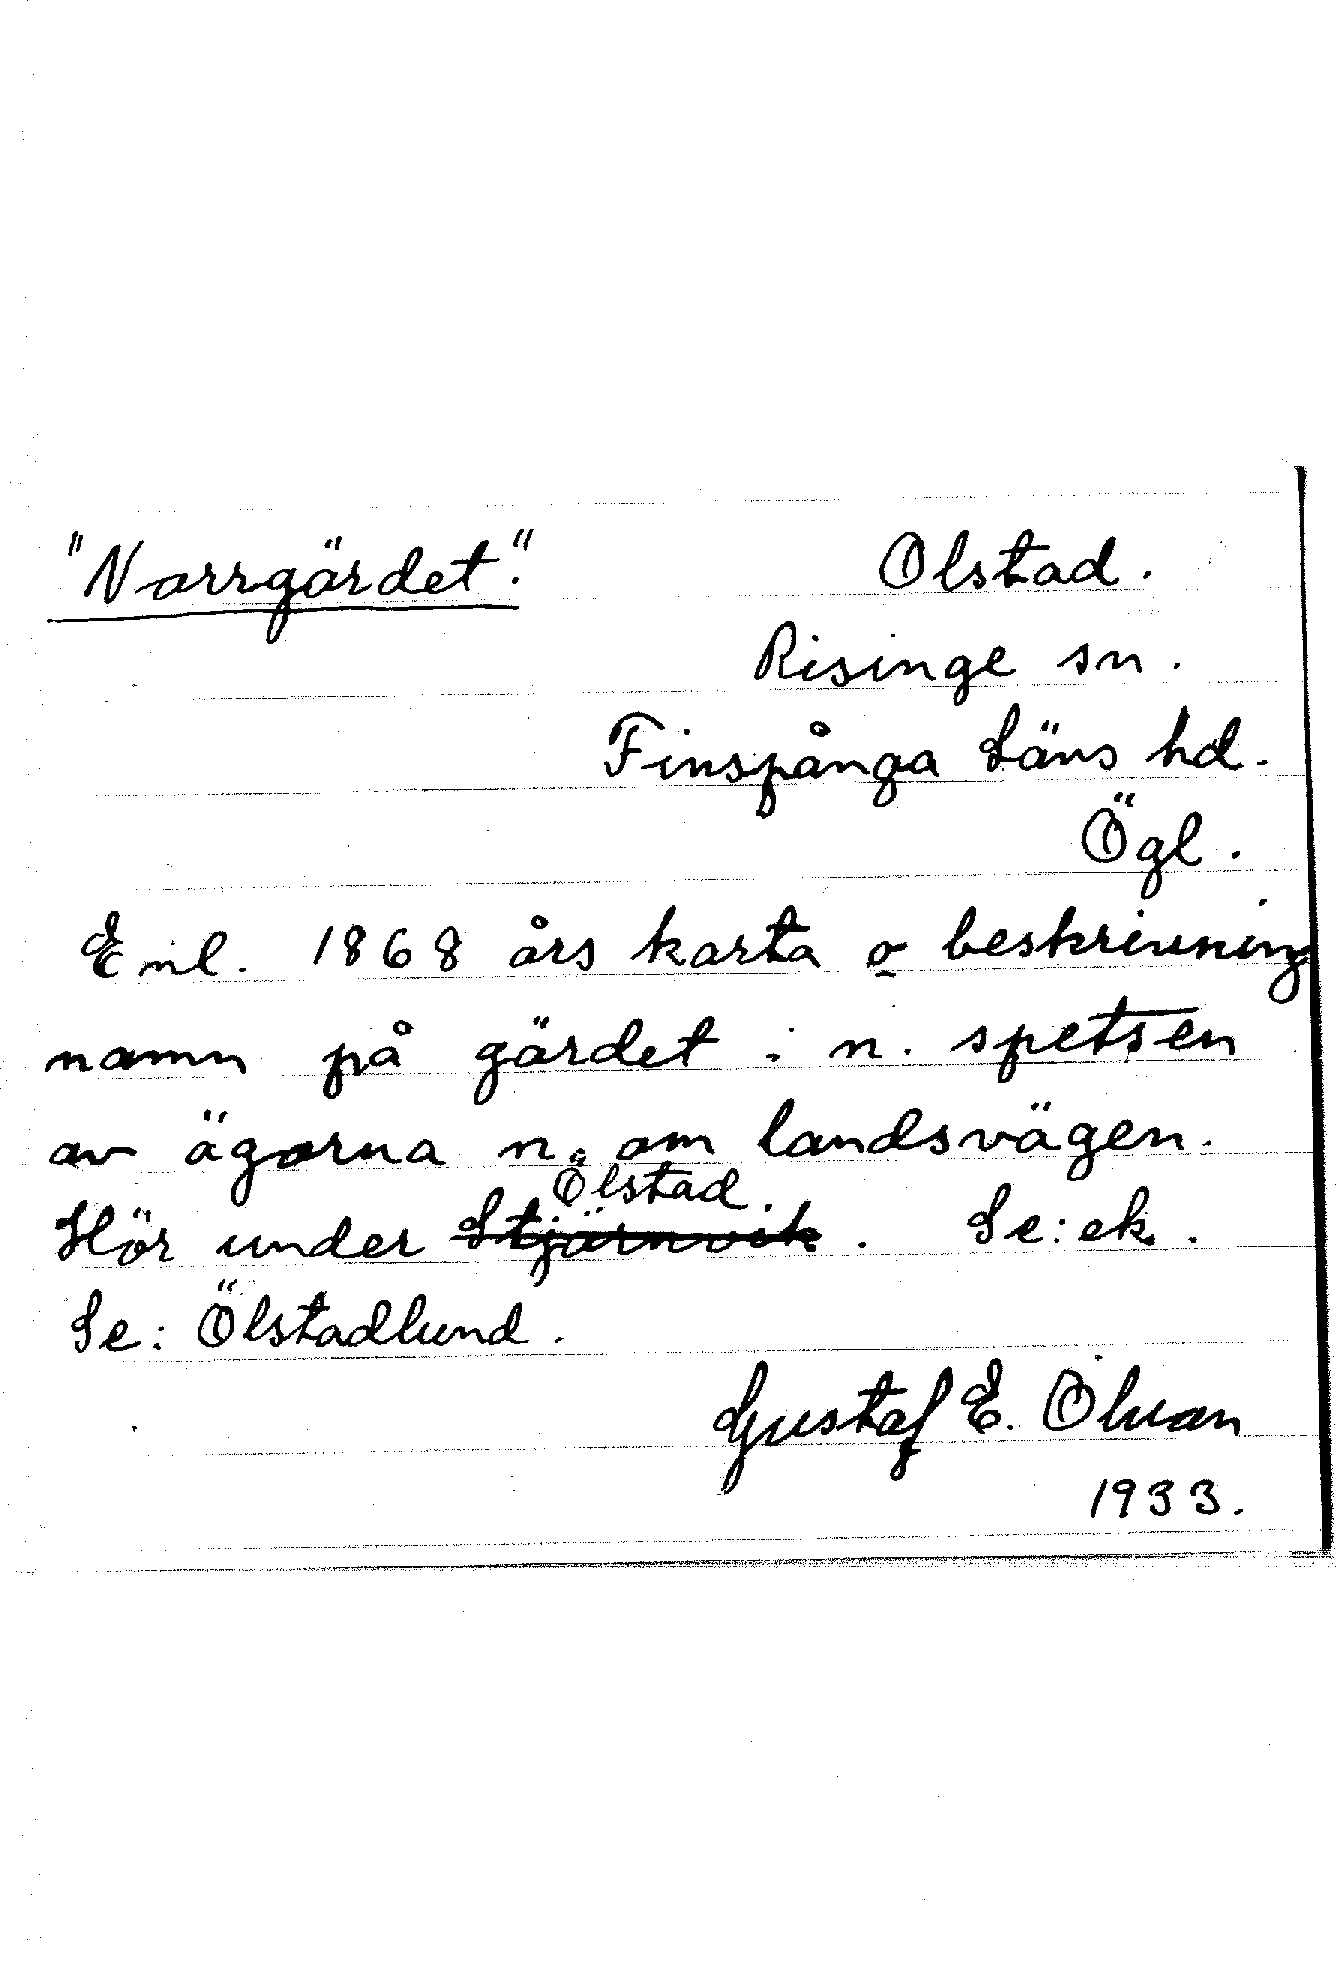 "Norrgärdet."
Olstad.
Risinge sn.
Finspånga Läns hd.
Ögl.
Enl. 1868 års karta o beskrivning
namn på gärdet i n. spetsen
av ägorna n. om landsvägen.
Ölstad.
Hör under Stjärnvik. Se: ek.
Se: Ölstadlund.
Gustaf E.
1933.